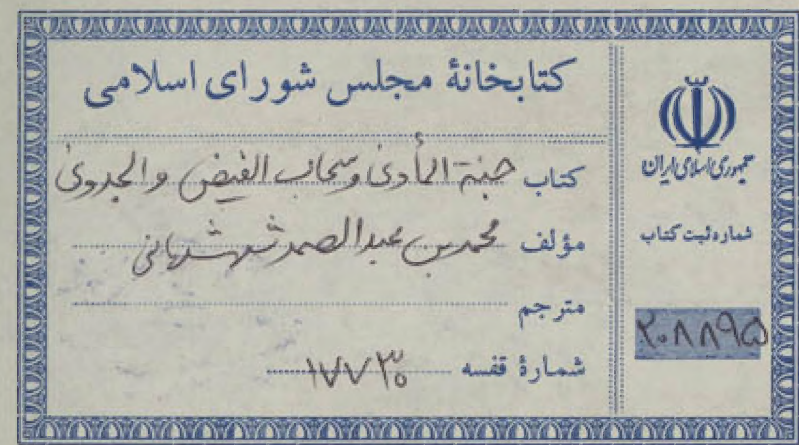 کتابخانهٔ مجلس شورای اسلامی
کتاب جنة المأوی وسحاب الفیض والجدوی
مؤلف محمد بن عبدالصمد شهشهانی
مترجم
شمارهٔ قفسه ۱۷۷۳۰
جمهوری اسلامی ایران
شماره ثبت کتاب
۲۰۸۸۹۵